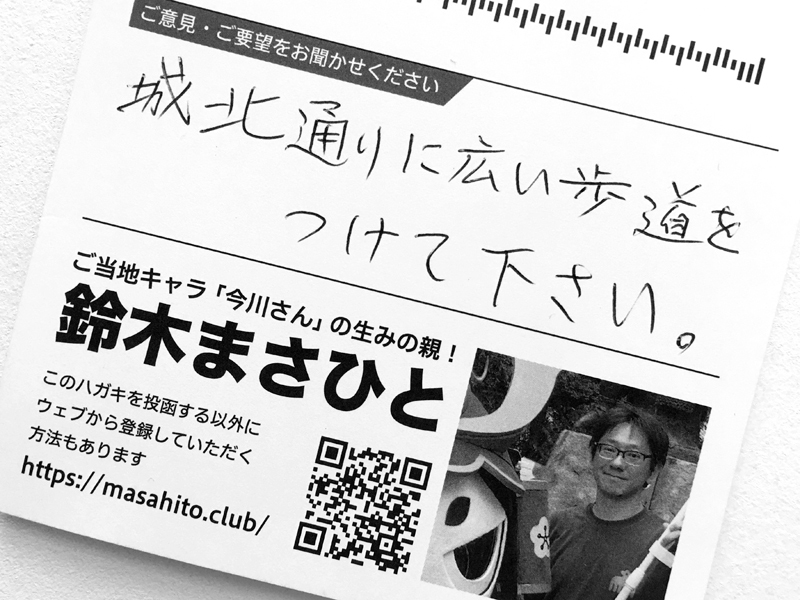 ご意見・ご要望をお聞かせください
城北通りに広い歩道を
つけて下さい。
ご当地キャラ「今川さん」の生みの親！
鈴木まさひと
このハガキを投函する以外に
ウェブから登録していただく
方法もあります
https://masahito.club/